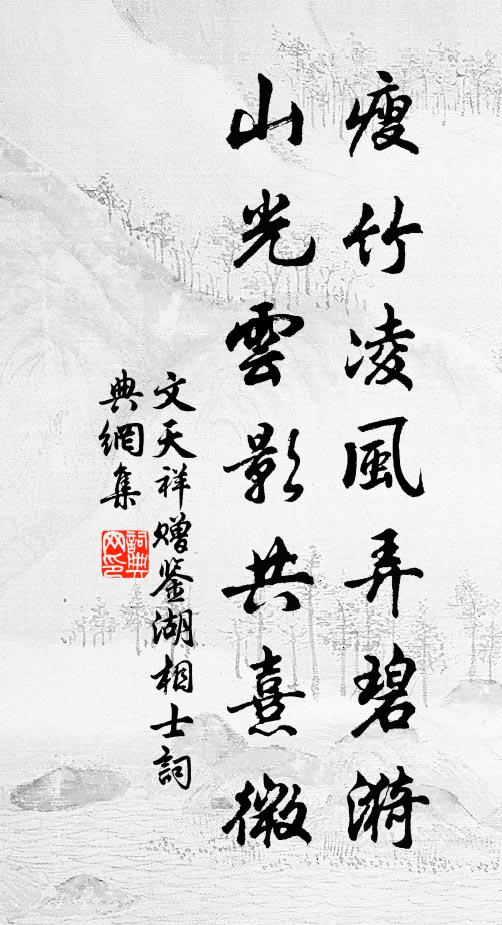 瘦竹凌風弄碧漪
山光雲影共熹微
文天祥贈鉴湖相士詞
典網集
詞典
网印